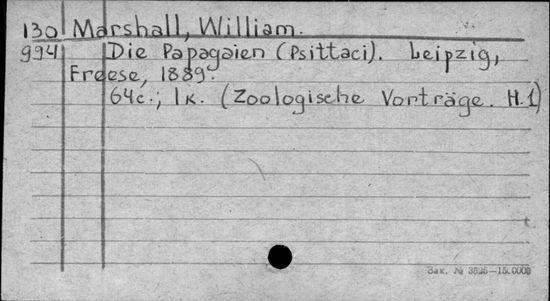 130 Marshall, William.
994 Die Papagaien (Psittaci). Leipzig,
Freese, 1889.
64c.; 1к. (Zoologische Vorträge. H.1)
Зак. № 3526—15.000